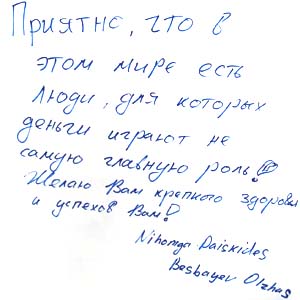 Приятно, что в
этом мире есть
люди, для которых
деньги играют не
самую главную роль!
Желаю Вам крепкого здоровья
и успехов Вам!
Nihonga Daiskides
Besbayev Olzhas